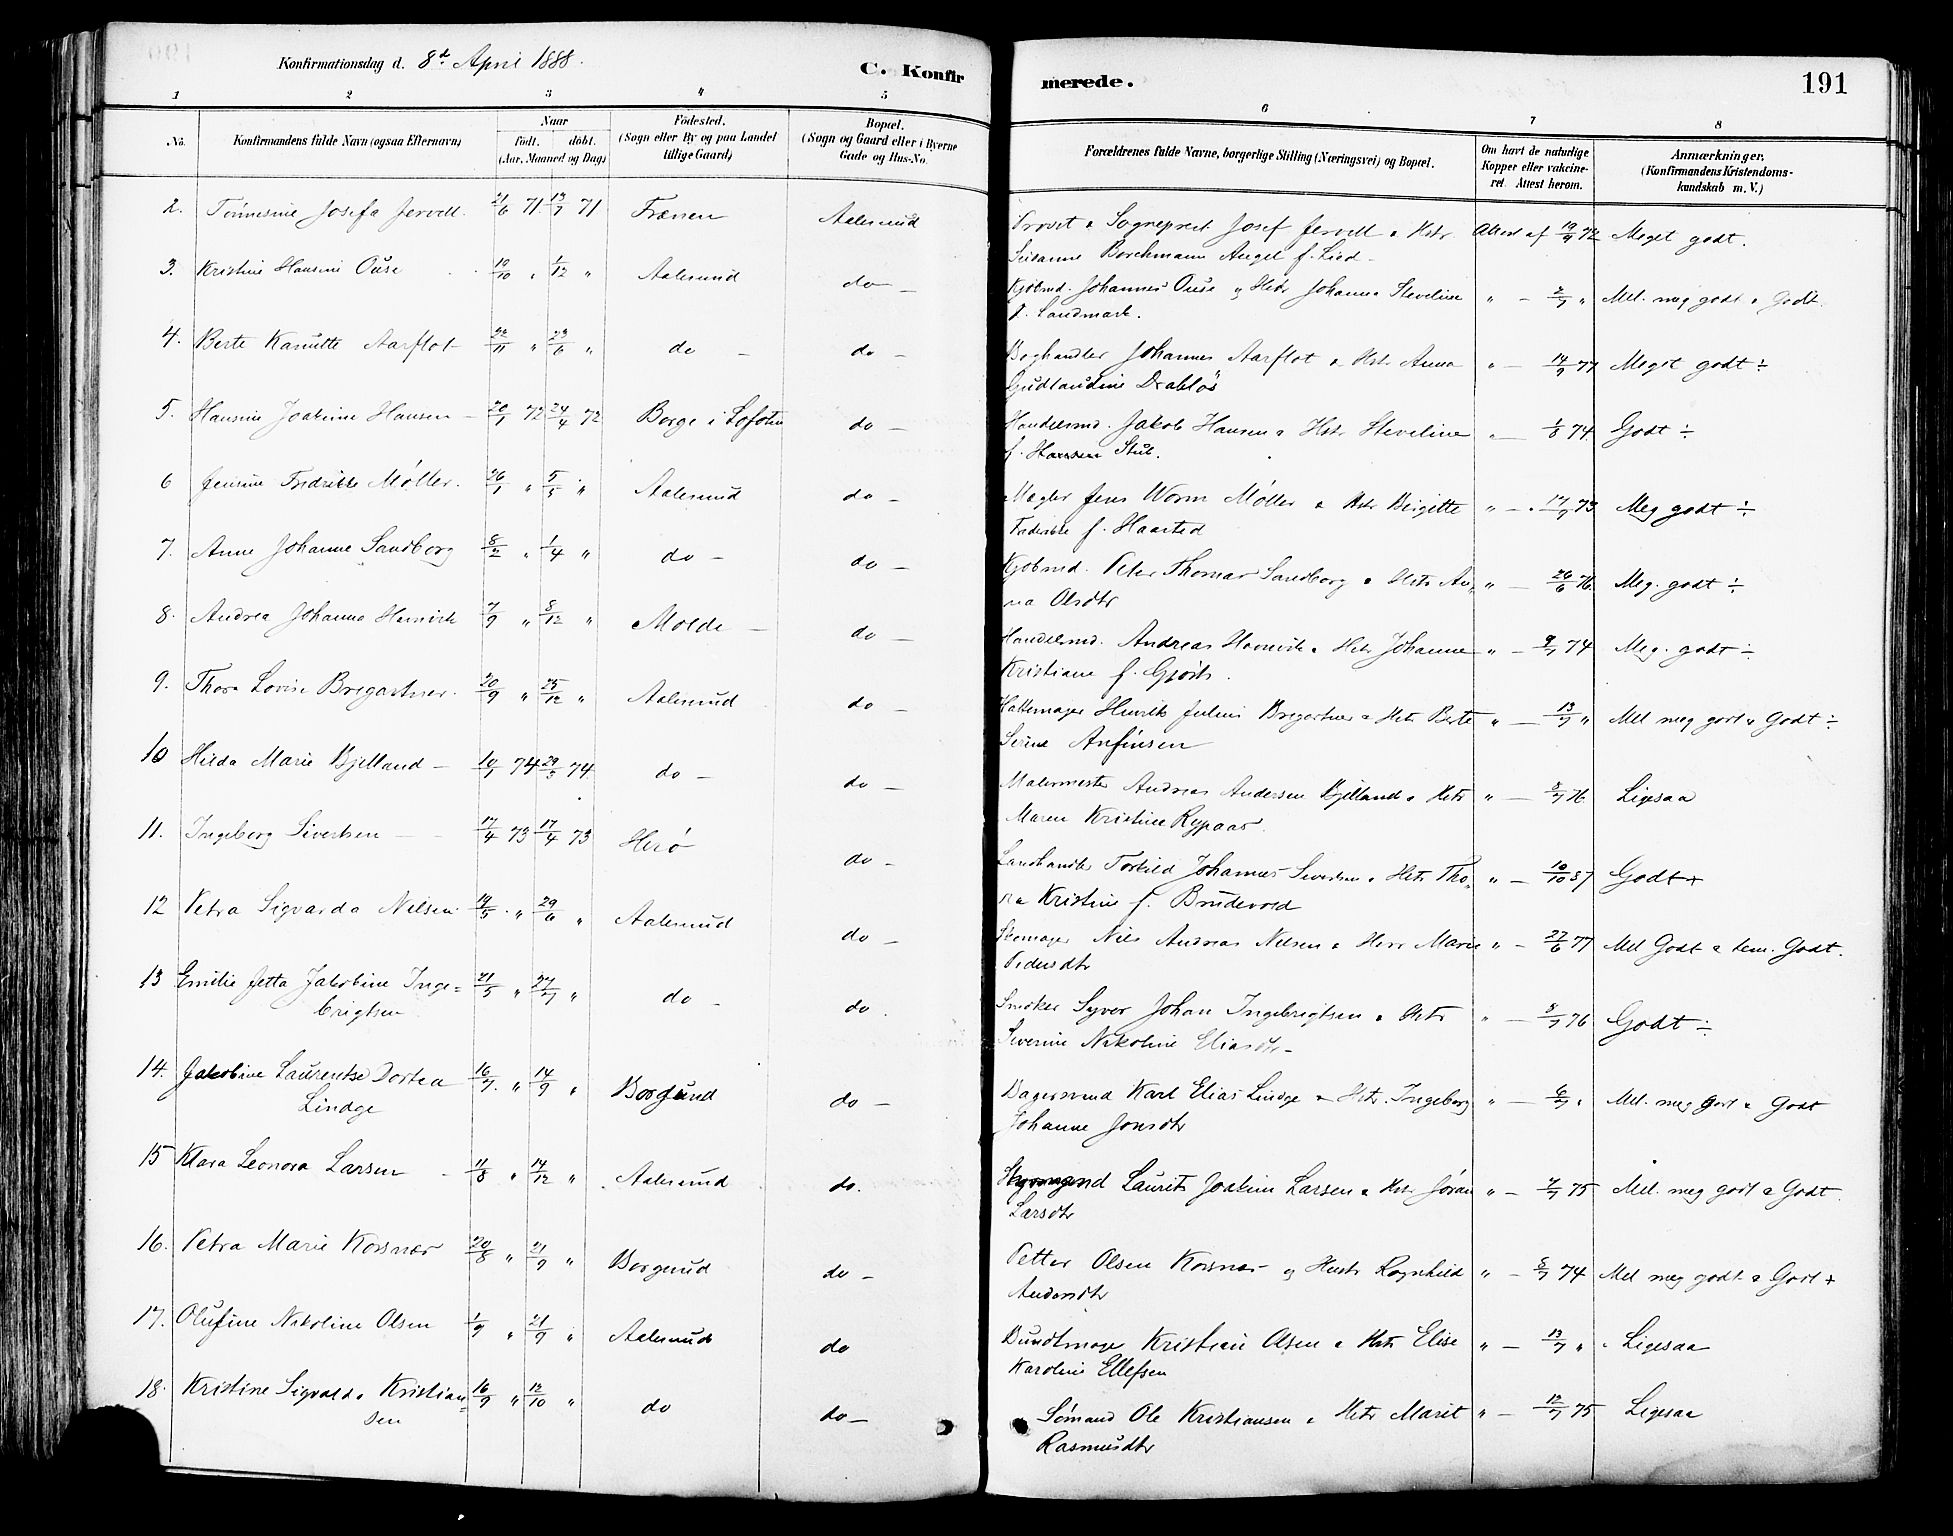 Konfirmationsdag d. 8d April 1888.
C. Konfirmerede.
191
1 2 3 4 5 6 7 8
No. Konfirmandens fulde Navn (ogsaa Efternavn) Naar født. døbt. (Aar, Maaned og Dag) Fødested. (Sogn eller By og paa Landet tillige Gaard) Bopæl. (Sogn og Gaard eller i Byerne Gade og Hus-No. Forældrenes fulde Navne, borgerlige Stilling (Næringsvei) og Bopæl. Om havt de naturlige Kopper eller vakcineret. Attest herom. Anmærkninger. (Konfirmandens Kristendomskundskab m. V.)
2. Tönnesine Josefa Jervell. 21/6 71. 13/7 71 Frænen Aalesund Provst & Sogneprest Josef Jervell & Hstr Attest af 19/9 72 Meget godt.
Susanne Borchmann Angel f. Lied
3. Kristine Hansine Ouse 10/10 " 1/12 " Aalesund do Kjøbmd. Johannes Ouse og Hstr Johanne Steveline " 2/7 " Mel. meg godt & Godt.
f. Landmark.
4. Berte Kanutte Aarflot 22/11 " 23/6 " do do Boghandler Johannes Aarflot & Hstr Anna " 14/9 77 Meget godt ÷
Gudlaudine Drabløs
5. Hansine Joakime Hansen 20/1 72 24/4 72 Borge i Lofoten do Handelsmd. Jakob Hansen & Hstr Steveline " 1/8 74 Godt ÷
f. Hansen Stub.
6 Jensine Fredrikke Møller. 26/1 " 5/5 " Aalesund do Mægler Jens Worm Møller & Hstr Birgitte " 17/9 73 Meg godt ÷
Frederikke f. Haarsted
7. Anne Johanne Sandborg 8/2 " 1/4 " do do Kjøbmd. Peter Thomas Sandborg & Hstr An- " 26/6 76 Meg. godt ÷
na Olsdtr
8. Andrea Johanna 7/9 " 8/12 " Molde do Handelsmd. Andreas & Hstr Johanne " 9/7 74 Meg. godt ÷
Kristiane f.
9. Thora Lovise Bregartner. 20/9 " 25/12 " Aalesund do Hattemager Henrik Julius Bregartner & Hstr Berte " 13/7 " Mel meg godt & Godt ÷
Serine Anfinsen
10 Hilda Marie Kjelland 10/1 74 29/3 74 do do Malermester Andreas Andersen Kjelland & Hstr " 3/7 76 Ligesaa
Maren Kristine Rypaas.
11. Ingeborg Sivertsen 17/4 73 17/4 73 Herø do Landhandler Torkild Johannes Sivertsen & Hstr Tho- " 10/10 87 Godt +
ra Kristine f. Brudevold
12 Petra Sigvarda Nilsen 19/5 " 29/6 " Aalesund do Skomager Nils Andreas Nilsen & Hstr Marie " 27/6 77 Mel Godt & tem. Godt.
Pedersdtr
13 Emilie Jetta Jakobine Inge- 21/5 " 27/7 " do do Snedker Syver Johan Ingebrigtsen & Hstr " 8/7 76 Godt ÷
brigtsen Severine Nikoline Eliasdtr
14. Jakobine Laurentse Dortea 16/7. " 14/9 " Borgund do Bagersvend Karl Elias Lindge & Hstr. Ingeborg " 6/7 " Mel. meg godt & Godt
Lindge Johanne Jonsdtr
15 Klara Leonora Larsen 11/8 " 14/12 " Aalesund do. Styrmand Laurits Joakim Larsen & Hstr Jøran " 7/7 75 Mel. meg godt & Godt.
Larsdtr
16. Petra Marie Korsnær 20/8 " 21/9 " Borgund do Petter Olsen Korsnær og Hustr Ragnhild " 8/7 74 Mel meg godt & Godt +
Andersdtr
17. Olufine Nikoline Olsen 1/9 " 21/9 " Aalesund do Bundtmager Kristian Olsen & Hstr Elise " 13/7 " Ligesaa
Karoline Ellefsen
18. Kristine Sigvalda Kristian- 16/9 " 12/10 " do do Sømand Ole Kristiansen & Hstr Marit " 12/7 75 Ligesaa
sen Rasmusdtr